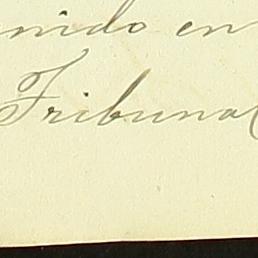 nido en
Tribunal